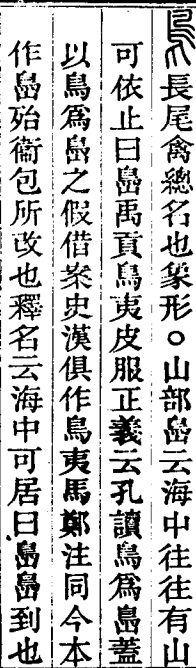 鳥長尾禽總名也象形○山部㠀云海中往往有山
可依止曰㠀禹貢鳥夷皮服正義云孔讀鳥爲㠀蓋
以鳥爲㠀之假借案史漢俱作鳥夷馬鄭注同今本
作㠀殆衞包所改也釋名云海中可居曰㠀㠀到也